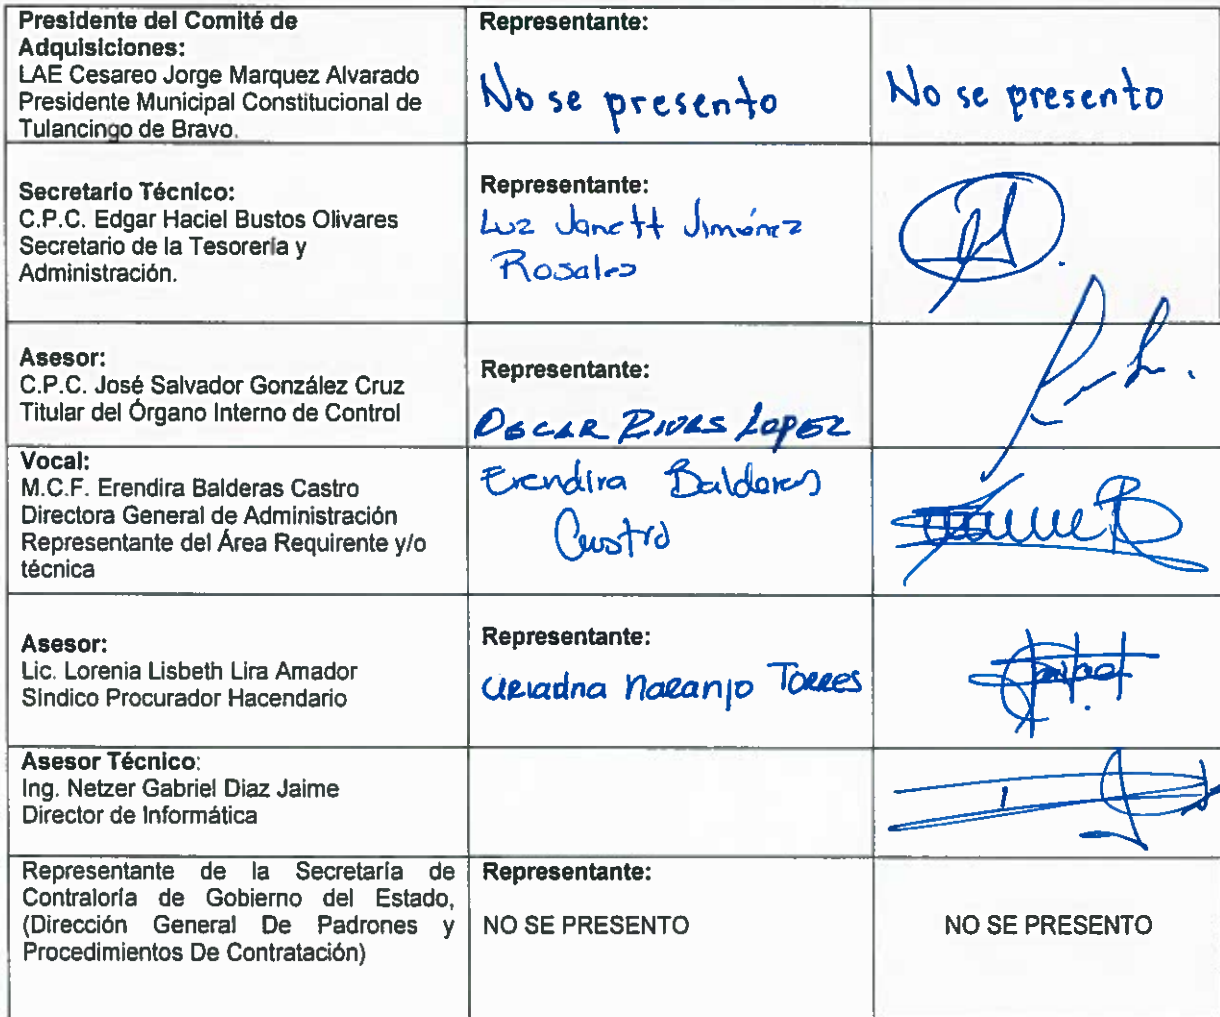 Presidente del Comité de
Adquisiciones:
LAE Cesareo Jorge Marquez Alvarado
Presidente Municipal Constitucional de
Tulancingo de Bravo.
Representante:
No se presento
No se presento
Secretario Técnico:
C.P.C. Edgar Haciel Bustos Olivares
Secretario de la Tesorería y
Administración.
Representante:
Luz Janett Jiménez
Rosales
Asesor:
C.P.C. José Salvador González Cruz
Titular del Órgano Interno de Control
Representante:
OSCAR RIVAS LOPEZ
Vocal:
M.C.F. Erendira Balderas Castro
Directora General de Administración
Representante del Área Requirente y/o
técnica
Erendira Balderas
Castro
Asesor:
Lic. Lorenia Lisbeth Lira Amador
Sindico Procurador Hacendario
Representante:
Ariadna Naranjo Torres
Asesor Técnico:
Ing. Netzer Gabriel Diaz Jaime
Director de Informática
Representante de la Secretaría de
Contraloría de Gobierno del Estado,
(Dirección General De Padrones y
Procedimientos De Contratación)
Representante:
NO SE PRESENTO
NO SE PRESENTO